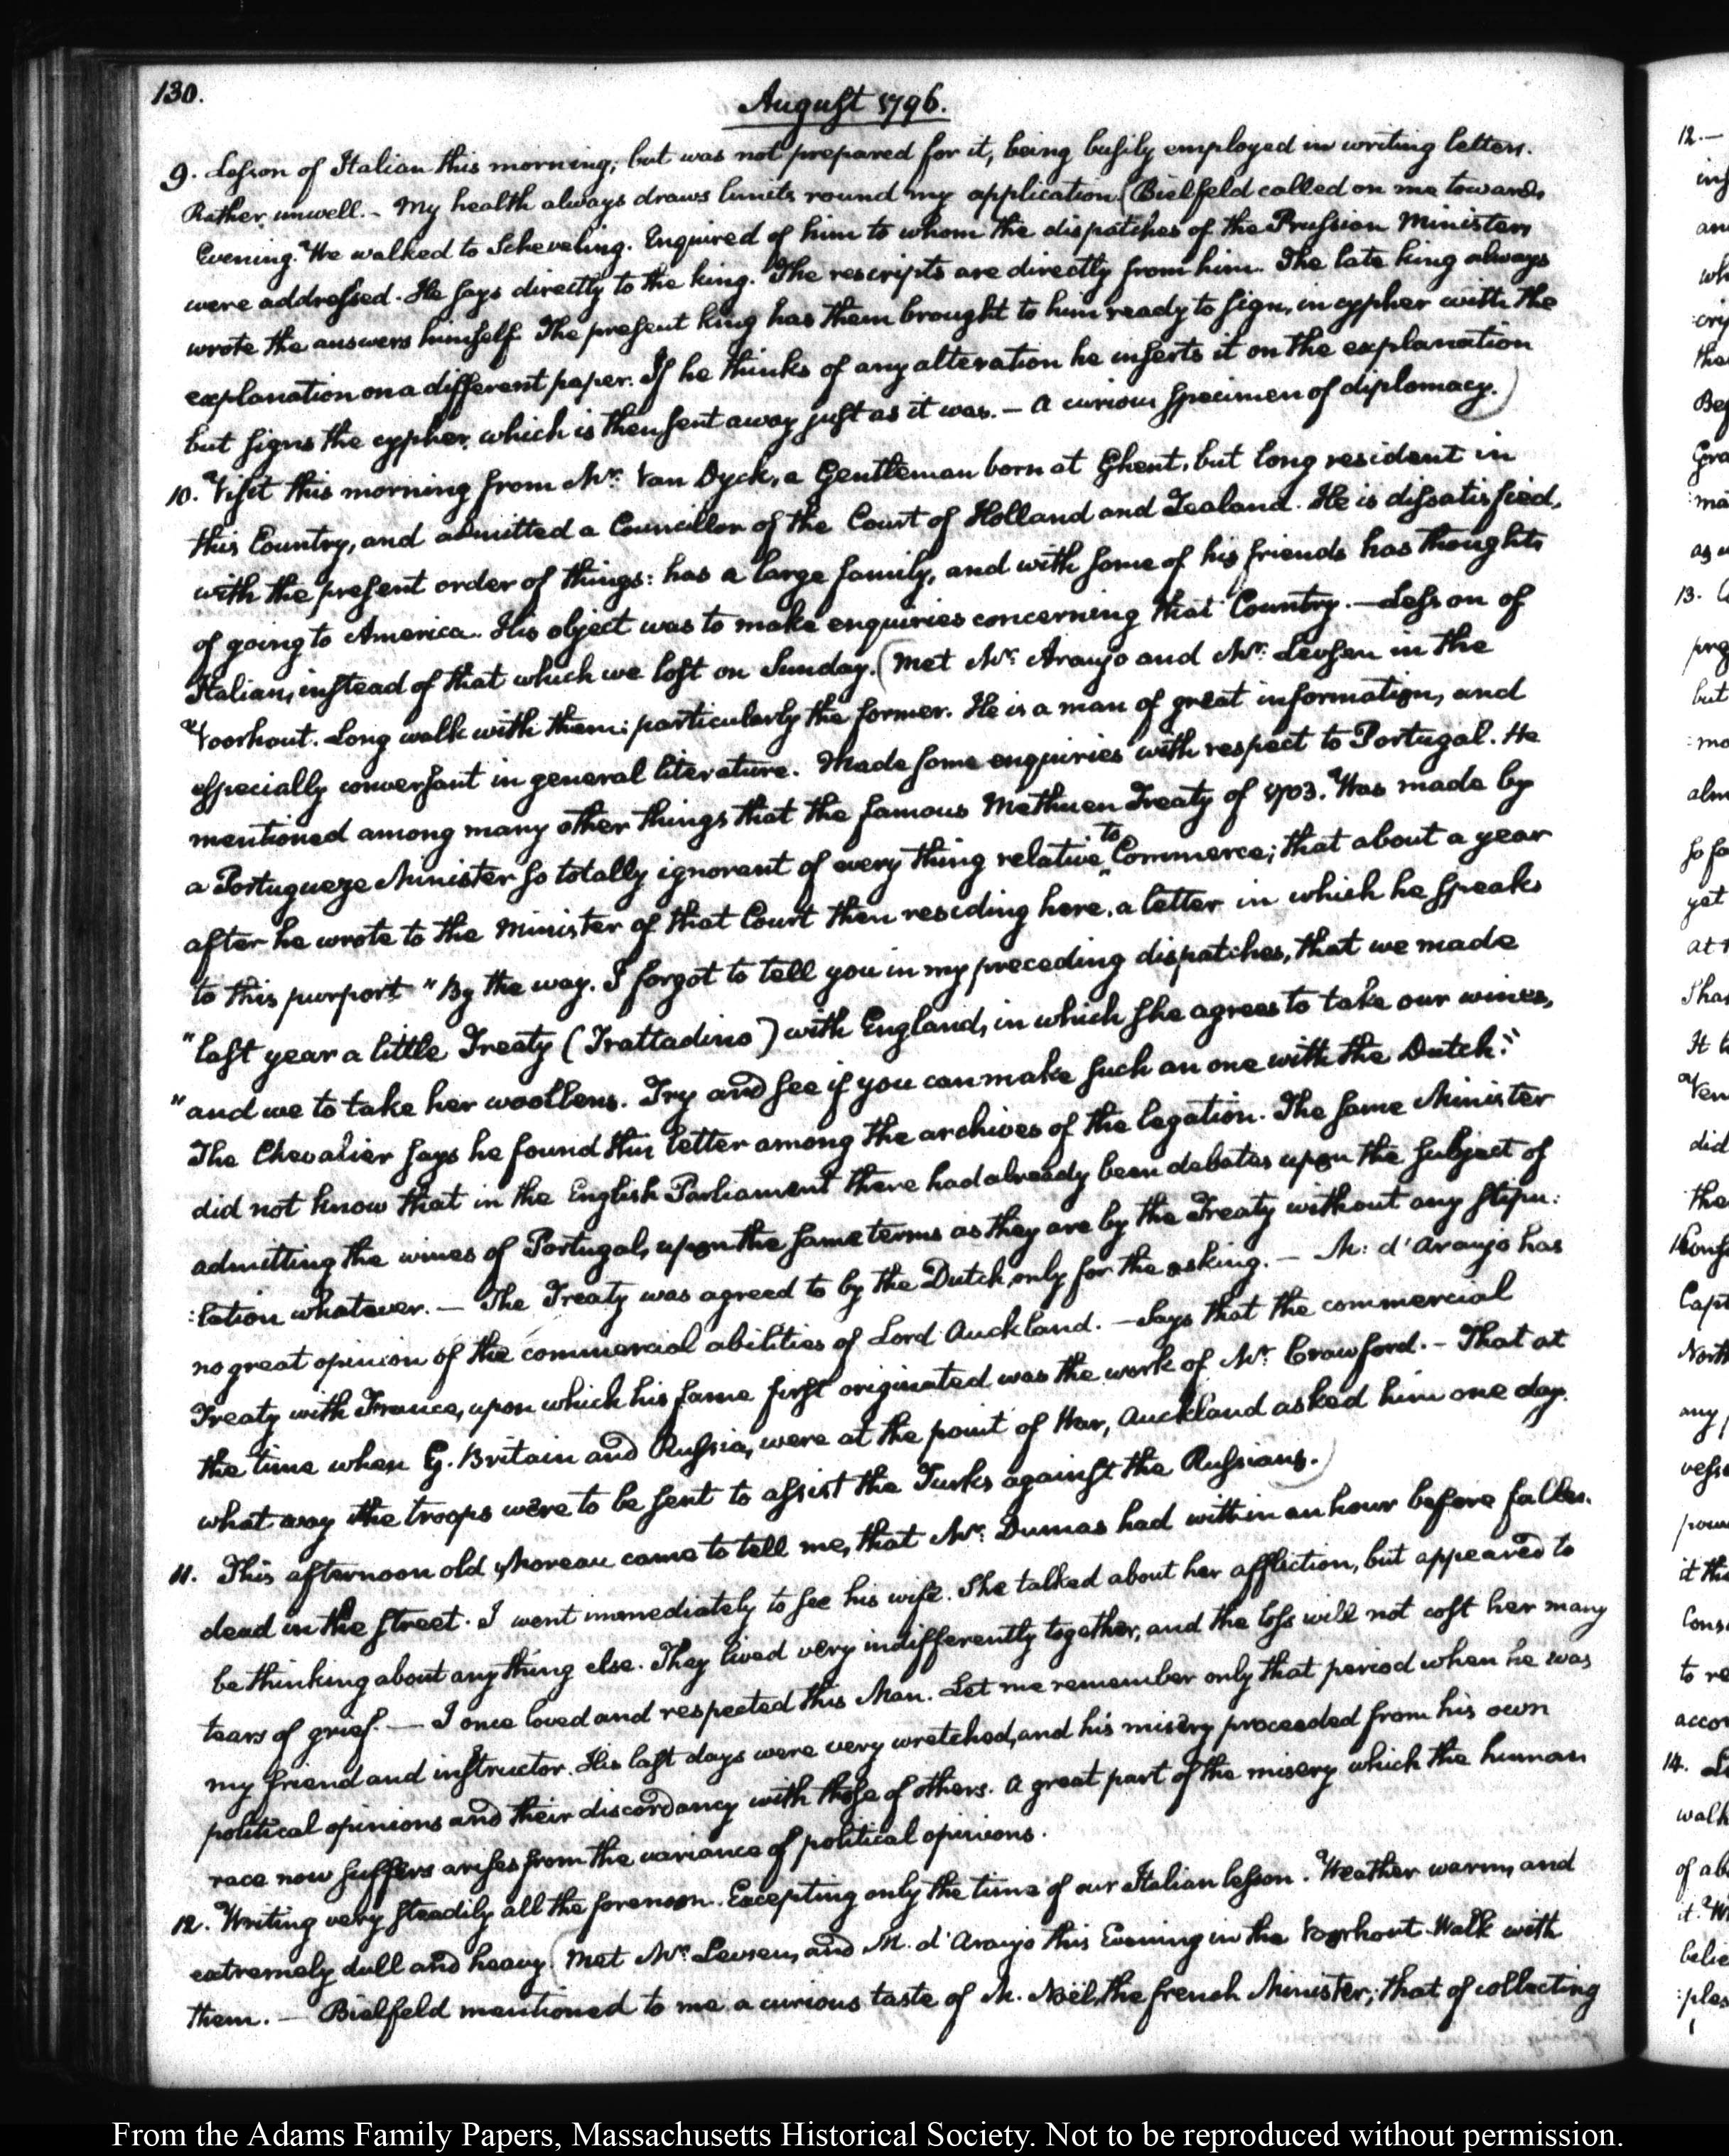 130.
August 1796.
9. Lesson of Italian this morning; but was not prepared for it, being busily employed in writing letters.
Rather unwell. - My health always draws limits round my application. (Bielfeld called on me towards
Evening. We walked to Scheveling. Enquired of him to whom the dispatches of the Prussian Ministers
were addressed. He says directly to the king. The rescripts are directly from him. The late king always
wrote the answers himself. The present king has them brought to him ready to sign, in cypher with the
explanation on a different paper. If he thinks of any alteration he inserts it on the explanation
but signs the cypher, which is then sent away just as it was. — A curious specimen of diplomacy.)
10. Visit this morning from Mr. Van Dyck, a Gentleman born at Ghent, but long resident in
this Country, and admitted a Councillor of the Court of Holland and Zealand. He is dissatisfied,
with the present order of things: has a large family, and with some of his friends has thoughts
of going to America. His object was to make enquiries concerning that Country. — Lesson of
Italian, instead of that which we lost on Sunday. (Met Mr. Araujo and Mr. Levsen in the
Voorhout. Long walk with them: particularly the former. He is a man of great information, and
especially conversant in general literature. Made some enquiries with respect to Portugal. He
mentioned among many other things that the famous Methuen Treaty of 1703. Was made by
a Portugueze Minister so totally ignorant of every thing relative to Commerce; that about a year
after he wrote to the Minister of that Court then residing here, a letter in which he speaks
to this purport "By the way. I forgot to tell you in my preceding dispatches, that we made
"last year a little Treaty (Trattadino) with England, in which she agrees to take our wines,
"and we to take her woollens. Try and see if you can make such an one with the Dutch."
The Chevalier says he found this letter among the archives of the legation. The same Minister
did not know that in the English Parliament there had already been debates upon the subject of
admitting the wines of Portugal, upon the same terms as they are by the Treaty without any stipu:
:lation whatever. — The Treaty was agreed to by the Dutch, only for the asking. — M: d'Araujo has
no great opinion of the commercial abilities of Lord Auckland. — Says that the commercial
Treaty with France, upon which his fame first originated was the work of Mr. Crawford. - That at
the time when G. Britain and Russia, were at the point of War, Auckland asked him one day.
what way the troops were to be sent to assist the Turks against the Russians.)
11. This afternoon old Moreau came to tell me, that Mr. Dumas had within an hour before fallen
dead in the street. I went immediately to see his wife. She talked about her affliction, but appeared to
be thinking about any thing else. They lived very indifferently together, and the loss will not cost her many
tears of grief. — I once loved and respected this Man. Let me remember only that period when he was
my friend and instructor. His last days were very wretched, and his misery proceeded from his own
political opinions and their discordancy with those of others. A great part of the misery which the human
race now suffers arises from the variance of political opinions.
12. Writing very steadily all the forenoon. Excepting only the time of our Italian lesson. Weather warm, and
extremely dull and heavy. (Met Mr. Levsen, and M. d'Araujo this Evening in the Voorhout. Walk with
them. — Bielfeld mentioned to me a curious taste of M. Noël, the french Minister; that of collecting
12.—
13.
14.
From the Adams Family Papers, Massachusetts Historical Society. Not to be reproduced without permission.